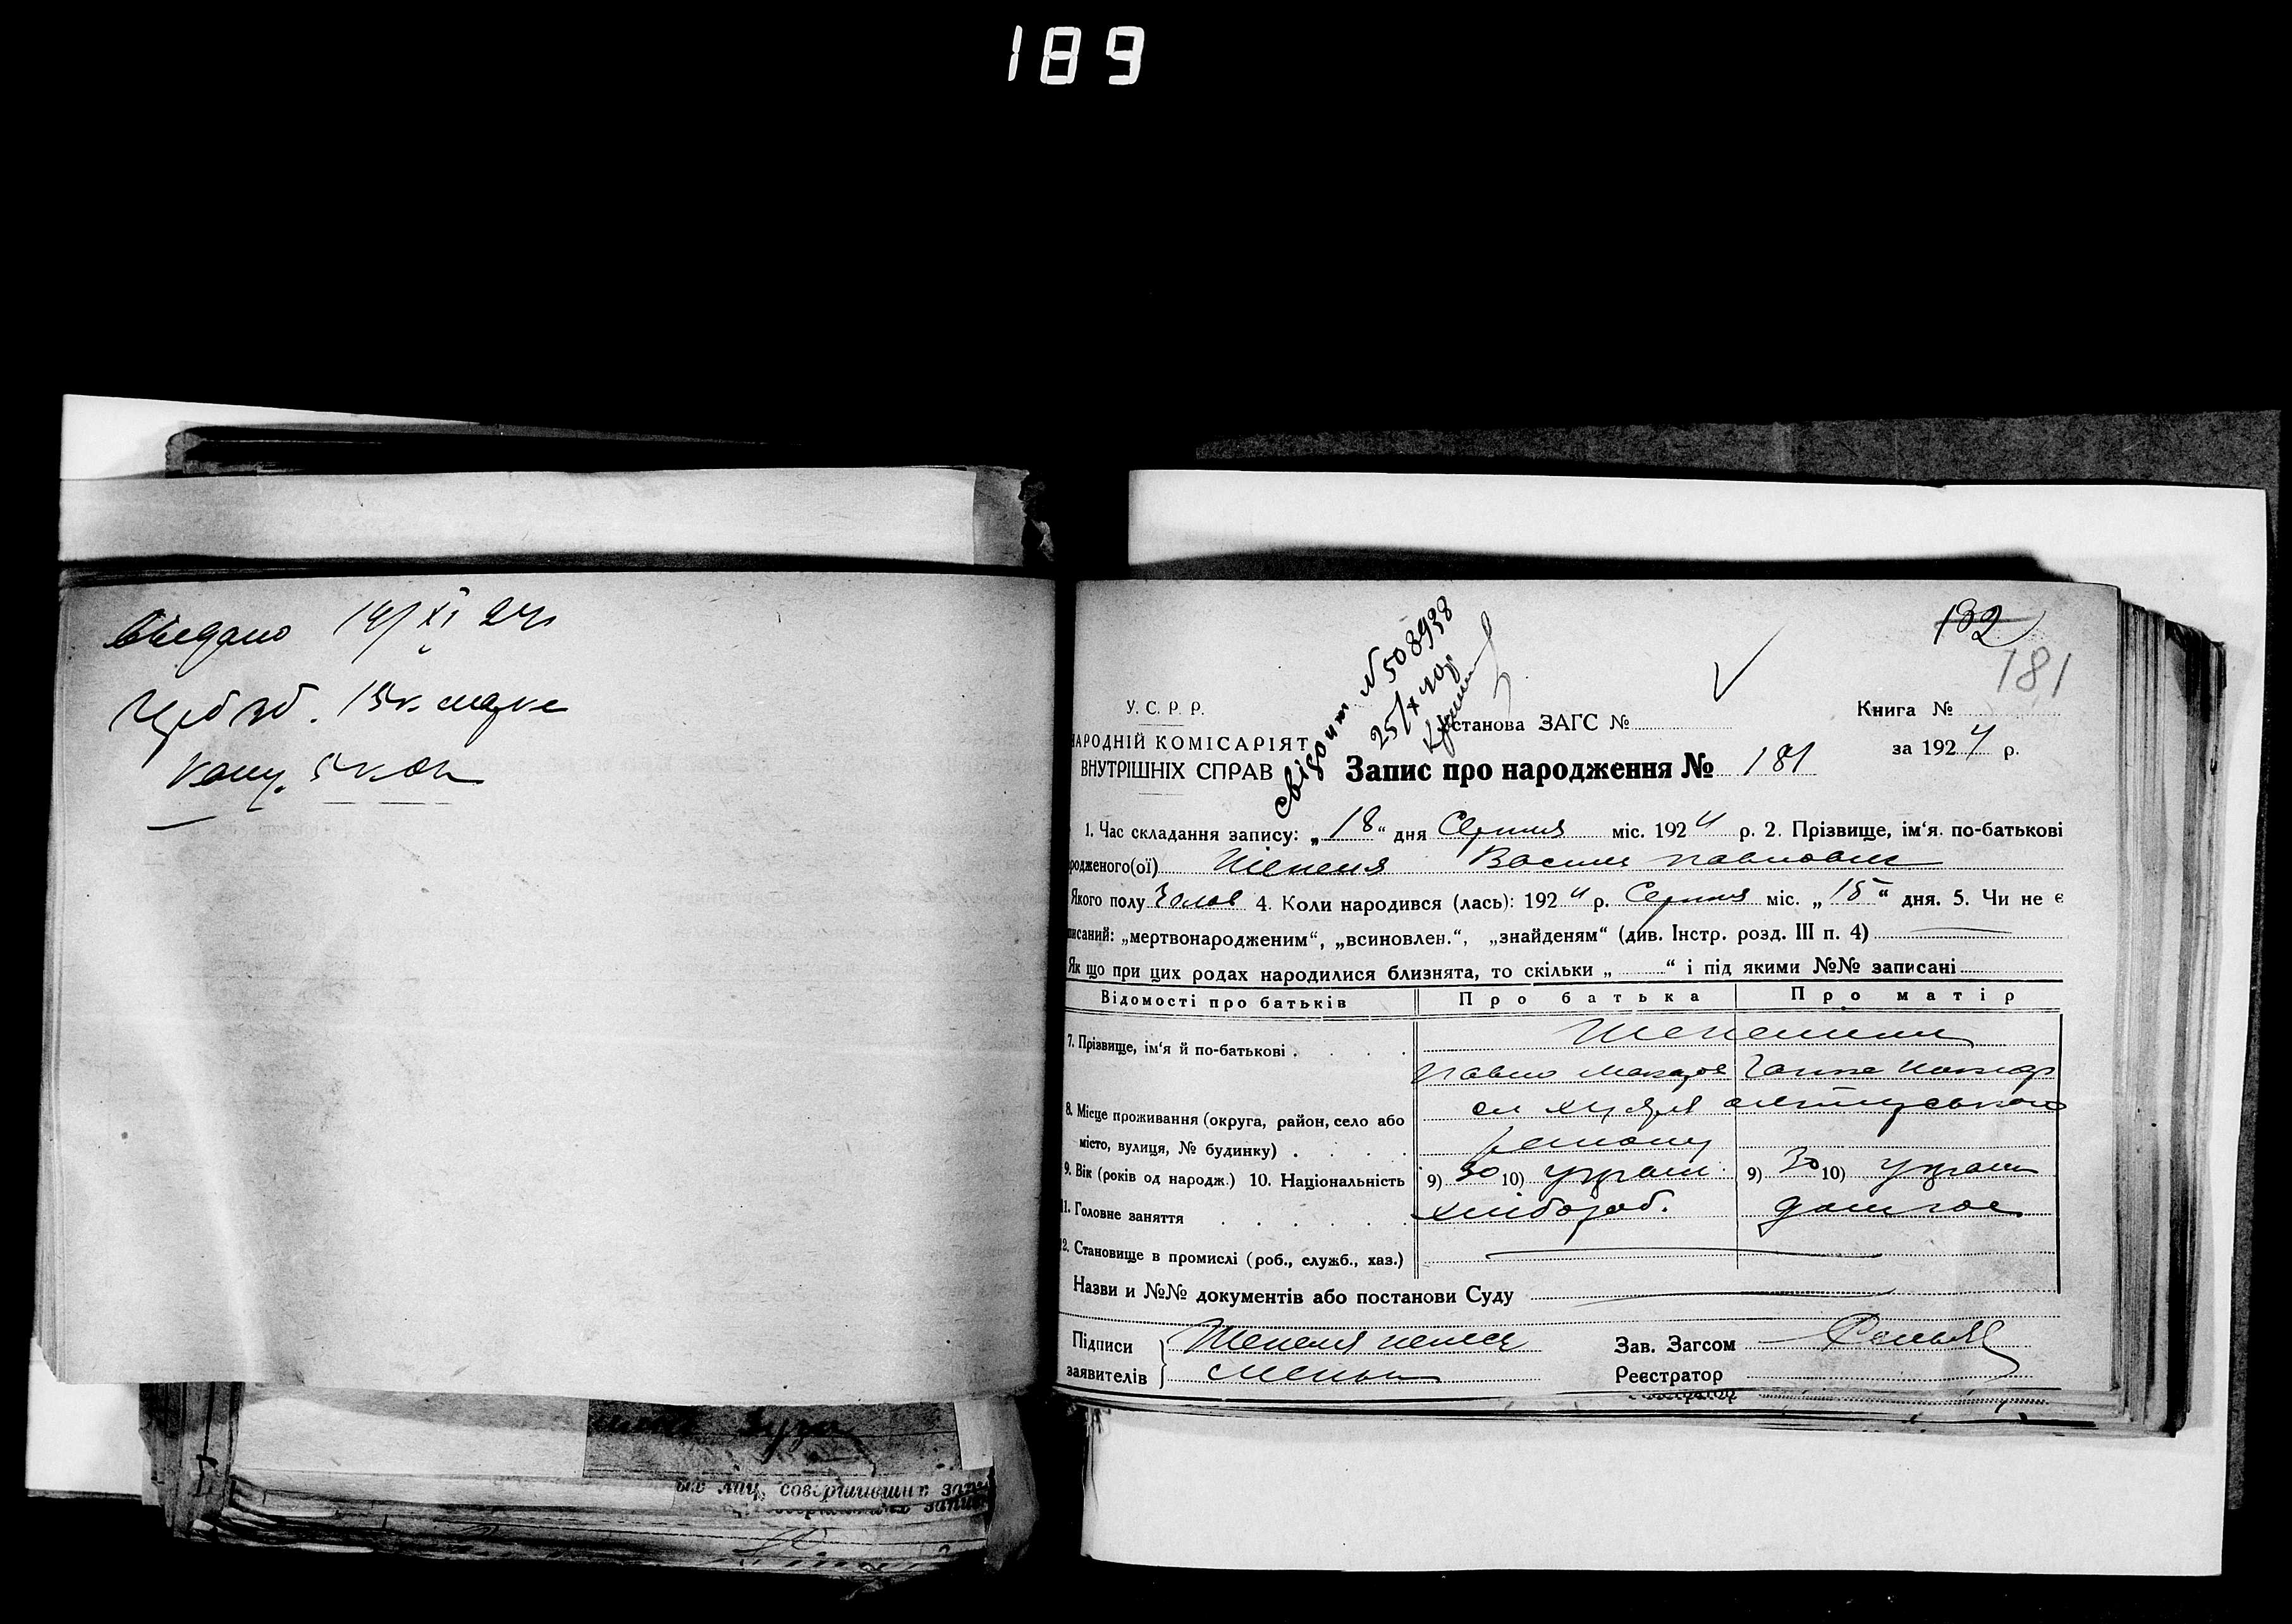 189
Видано 14/XI 24
15к. марк
132
181
Свідочт. N 508938
25/X 40р.
У. С. Р. Р.
НАРОДНІЙ КОМІСАРІЯТ
ВНУТРІШНІХ СПРАВ
Установа ЗАГС №
Книга №
за 1924 р.
Запис про народження № 181
1. Час складання запису: „18“ дня Серпня міс. 1924 р. 2. Прізвище, ім‘я, по-батькові
родженого(ої) Шепеля Василь Павлович
Якого полу Чолов 4. Коли народився (лась): 1924 р. Серпня міс. „15“ дня. 5. Чи не є
писаний: „мертвонародженим“, „всиновлен.“, „знайденям“ (див. Інстр. розд. III п. 4)
Як що при цих родах народилися близнята, то скільки „ “ і під якими №№ записані
Відомості про батьків Про батька Про матір
7. Прізвище, ім‘я й по-батькові
Павло Макаров Ганна
8. Місце проживання (округа, район, село або
місто, вулиця, № будинку)
району
9. Вік (років од народж.) 10. Національність 9) 30 10) україн. 9) 30 10) україн
11. Головне заняття хлібороб. домгос
12. Становище в промислі (роб., служб., хаз.)
Назви и №№ документів або постанови Суду
Підписи Шепеля непись
заявителів
Зав. Загсом
Реєстратор
ых лиц, совершивших запи